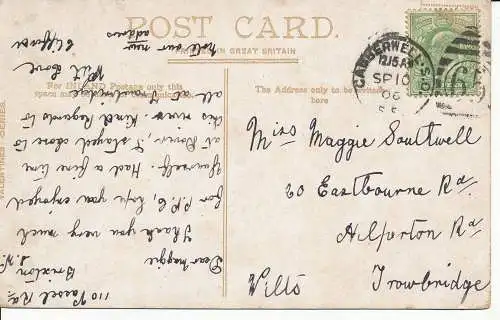 POST CARD.
GREAT BRITAIN
For INLAND Postage only this
space may
The Address only to be written
here
VALENTINES SERIES
CAMBERWELL
12.15AM
SP 10
06
S.E.
Miss Maggie Southwell
20 Eastbourne Rd
Hilperton Rd
Trowbridge
Wilts
110 Vassel Rd
Brixton
S.W.
Dear Maggie
Thank you very much
for P.P.C, hope you enjoyed
yourself. Had a fine time
at Dover, I stayed close to
this view. Kind Regards to
all at Trowbridge
With Love
note our new
address